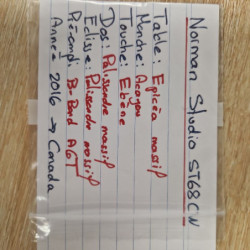 Norman Studio ST68CW
Table: Epicéa massif
Manche: Acajou
Touche: Ebène
Dos: Palissandre massif
Eclisse: Palissandre massif
Préampli: B-Band A6T
Année 2016 → Canada